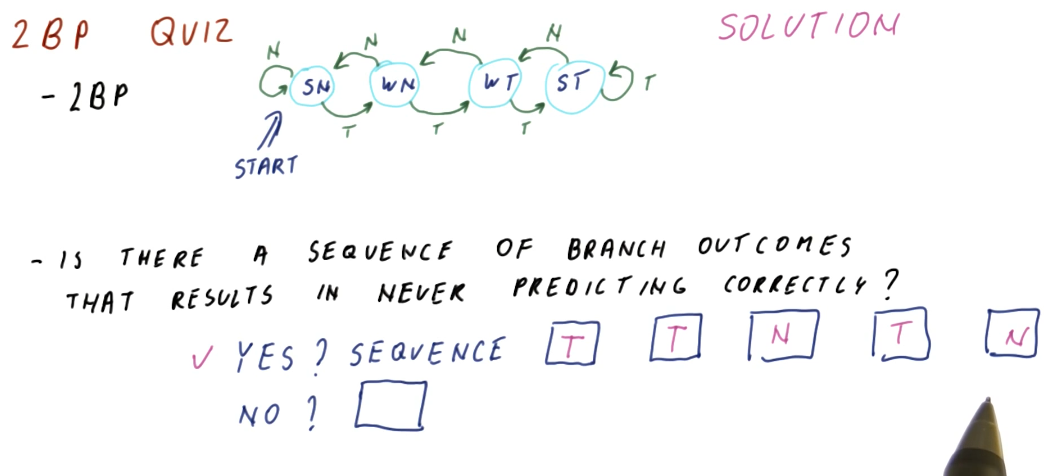 2BP QUIZ
SOLUTION
- 2BP
N N N N
SN WN WT ST T
T T T
START
- IS THERE A SEQUENCE OF BRANCH OUTCOMES
THAT RESULTS IN NEVER PREDICTING CORRECTLY?
✓ YES? SEQUENCE T T N T N
NO?